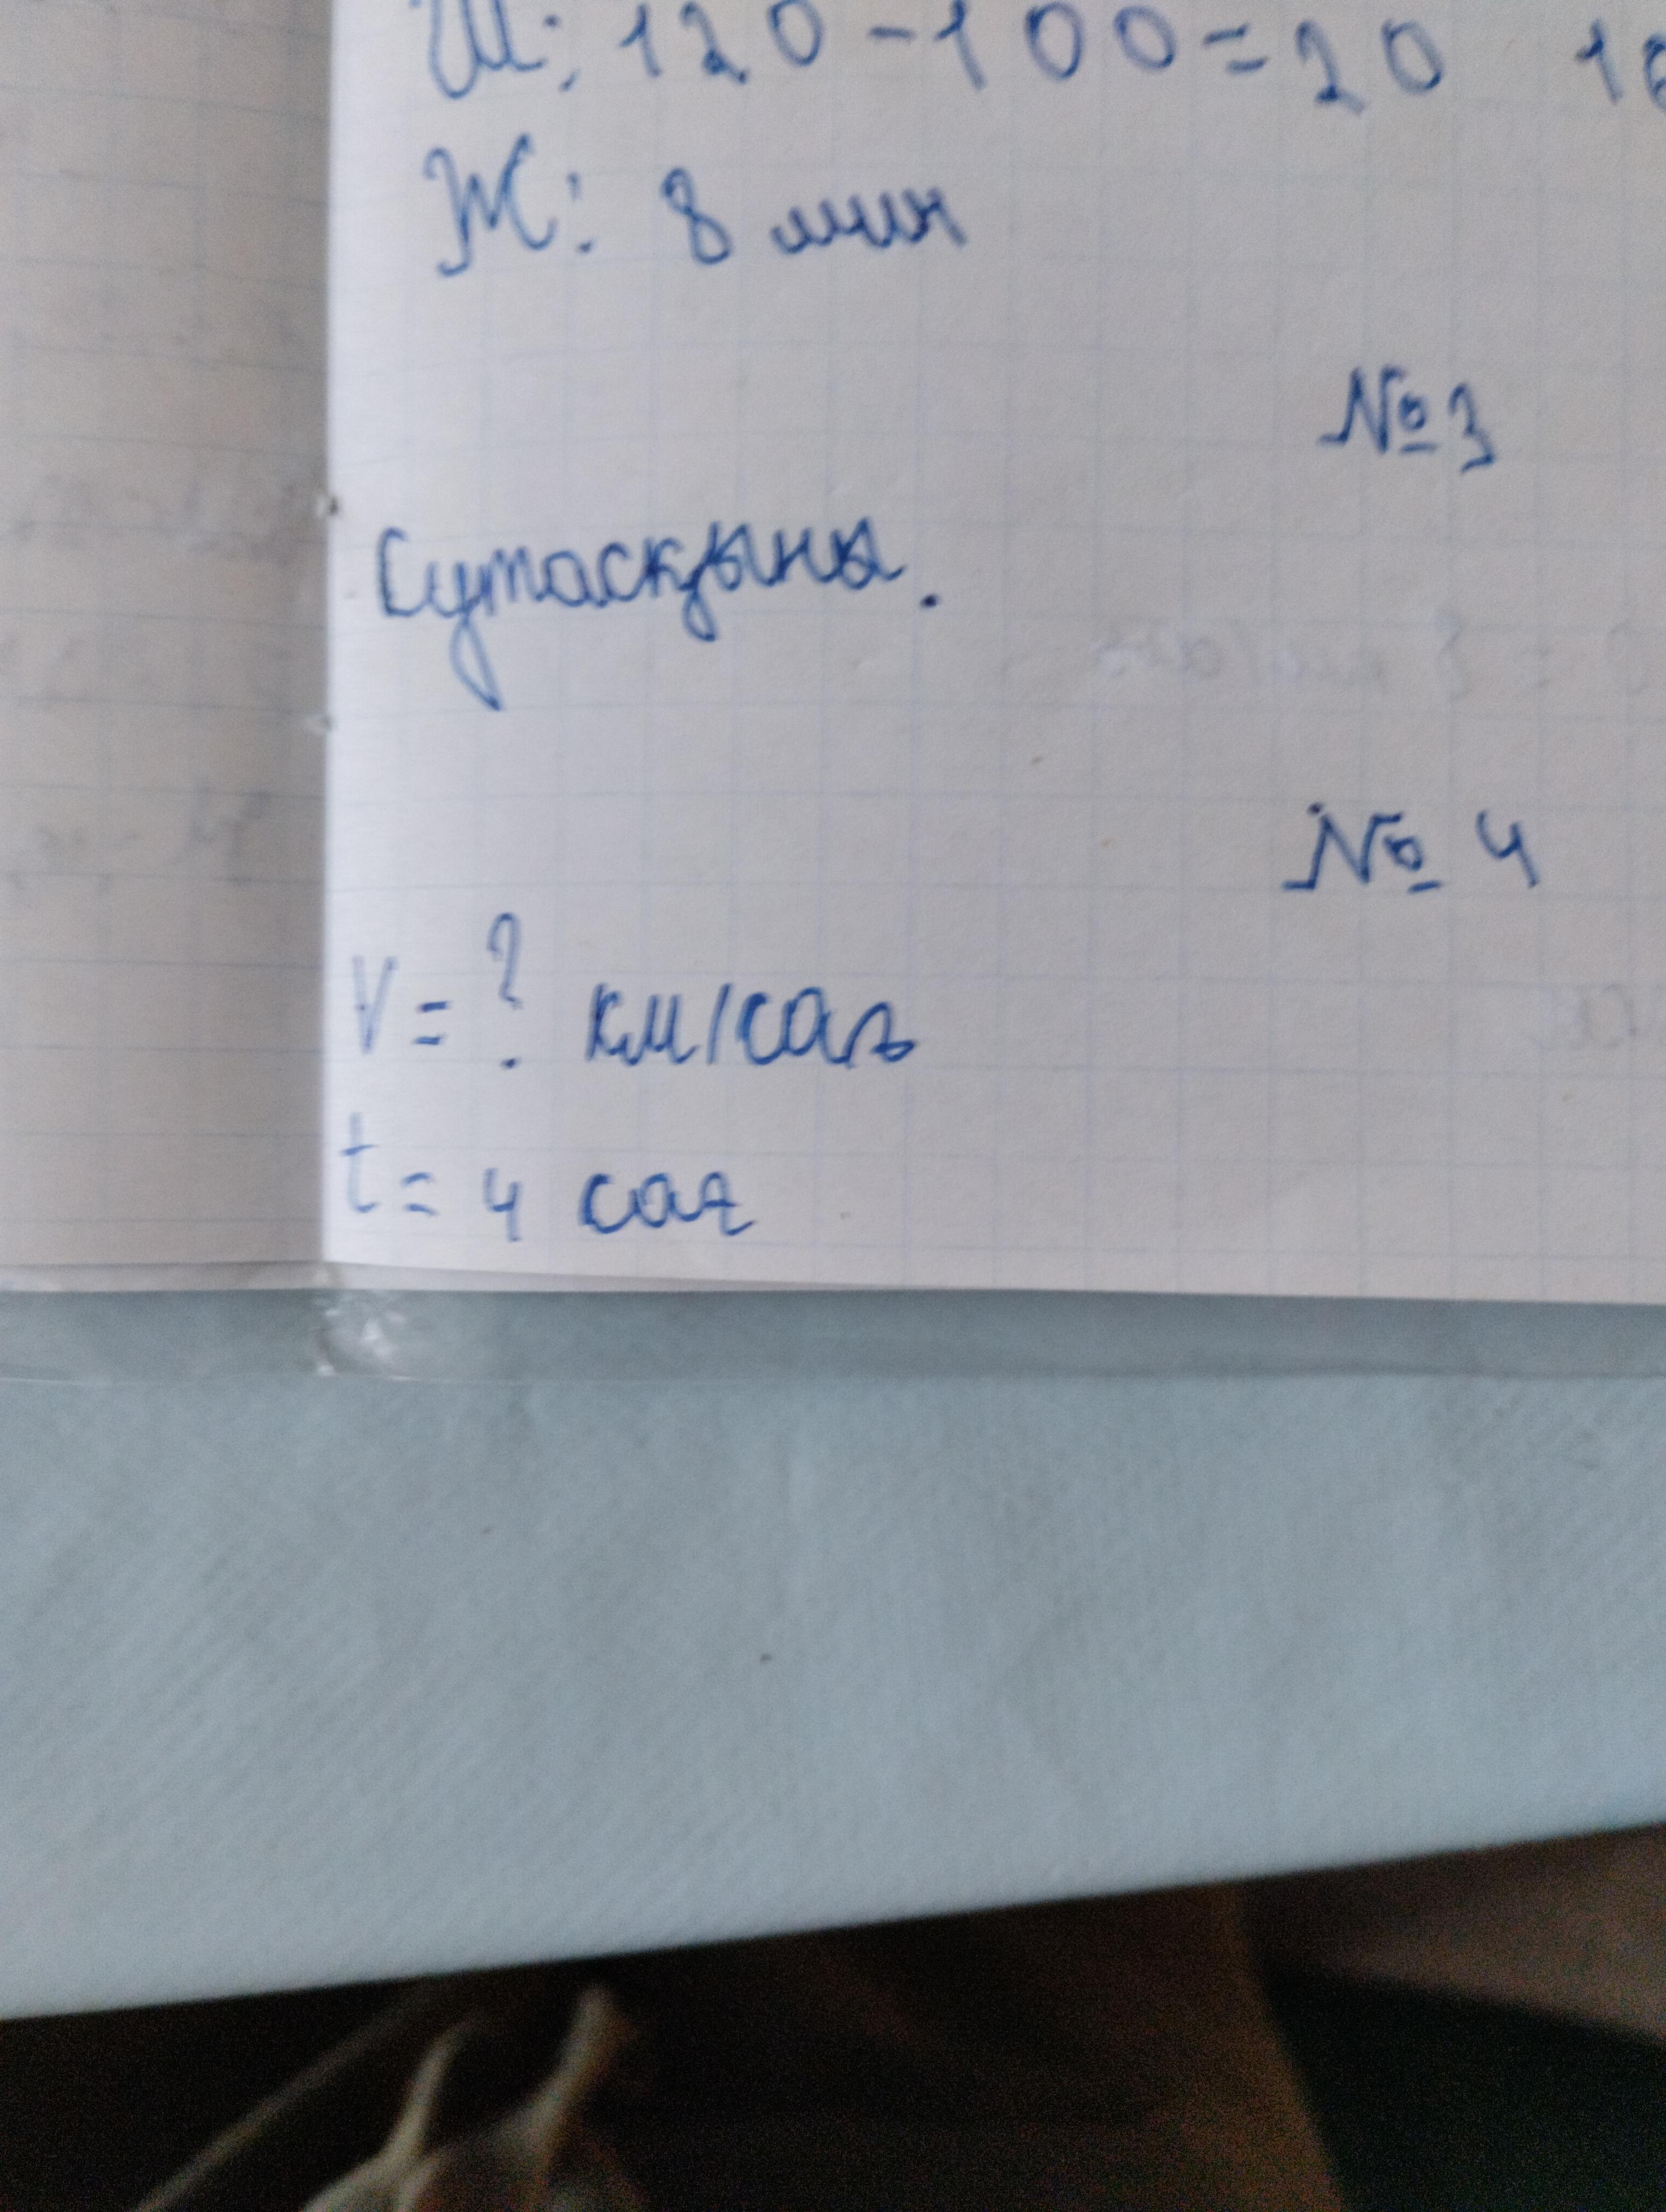 Ш: 120-100=20
Ж: 8 мин
№3
Сутасқыны.
№ 4
V = ? км/сағ
t = 4 сағ